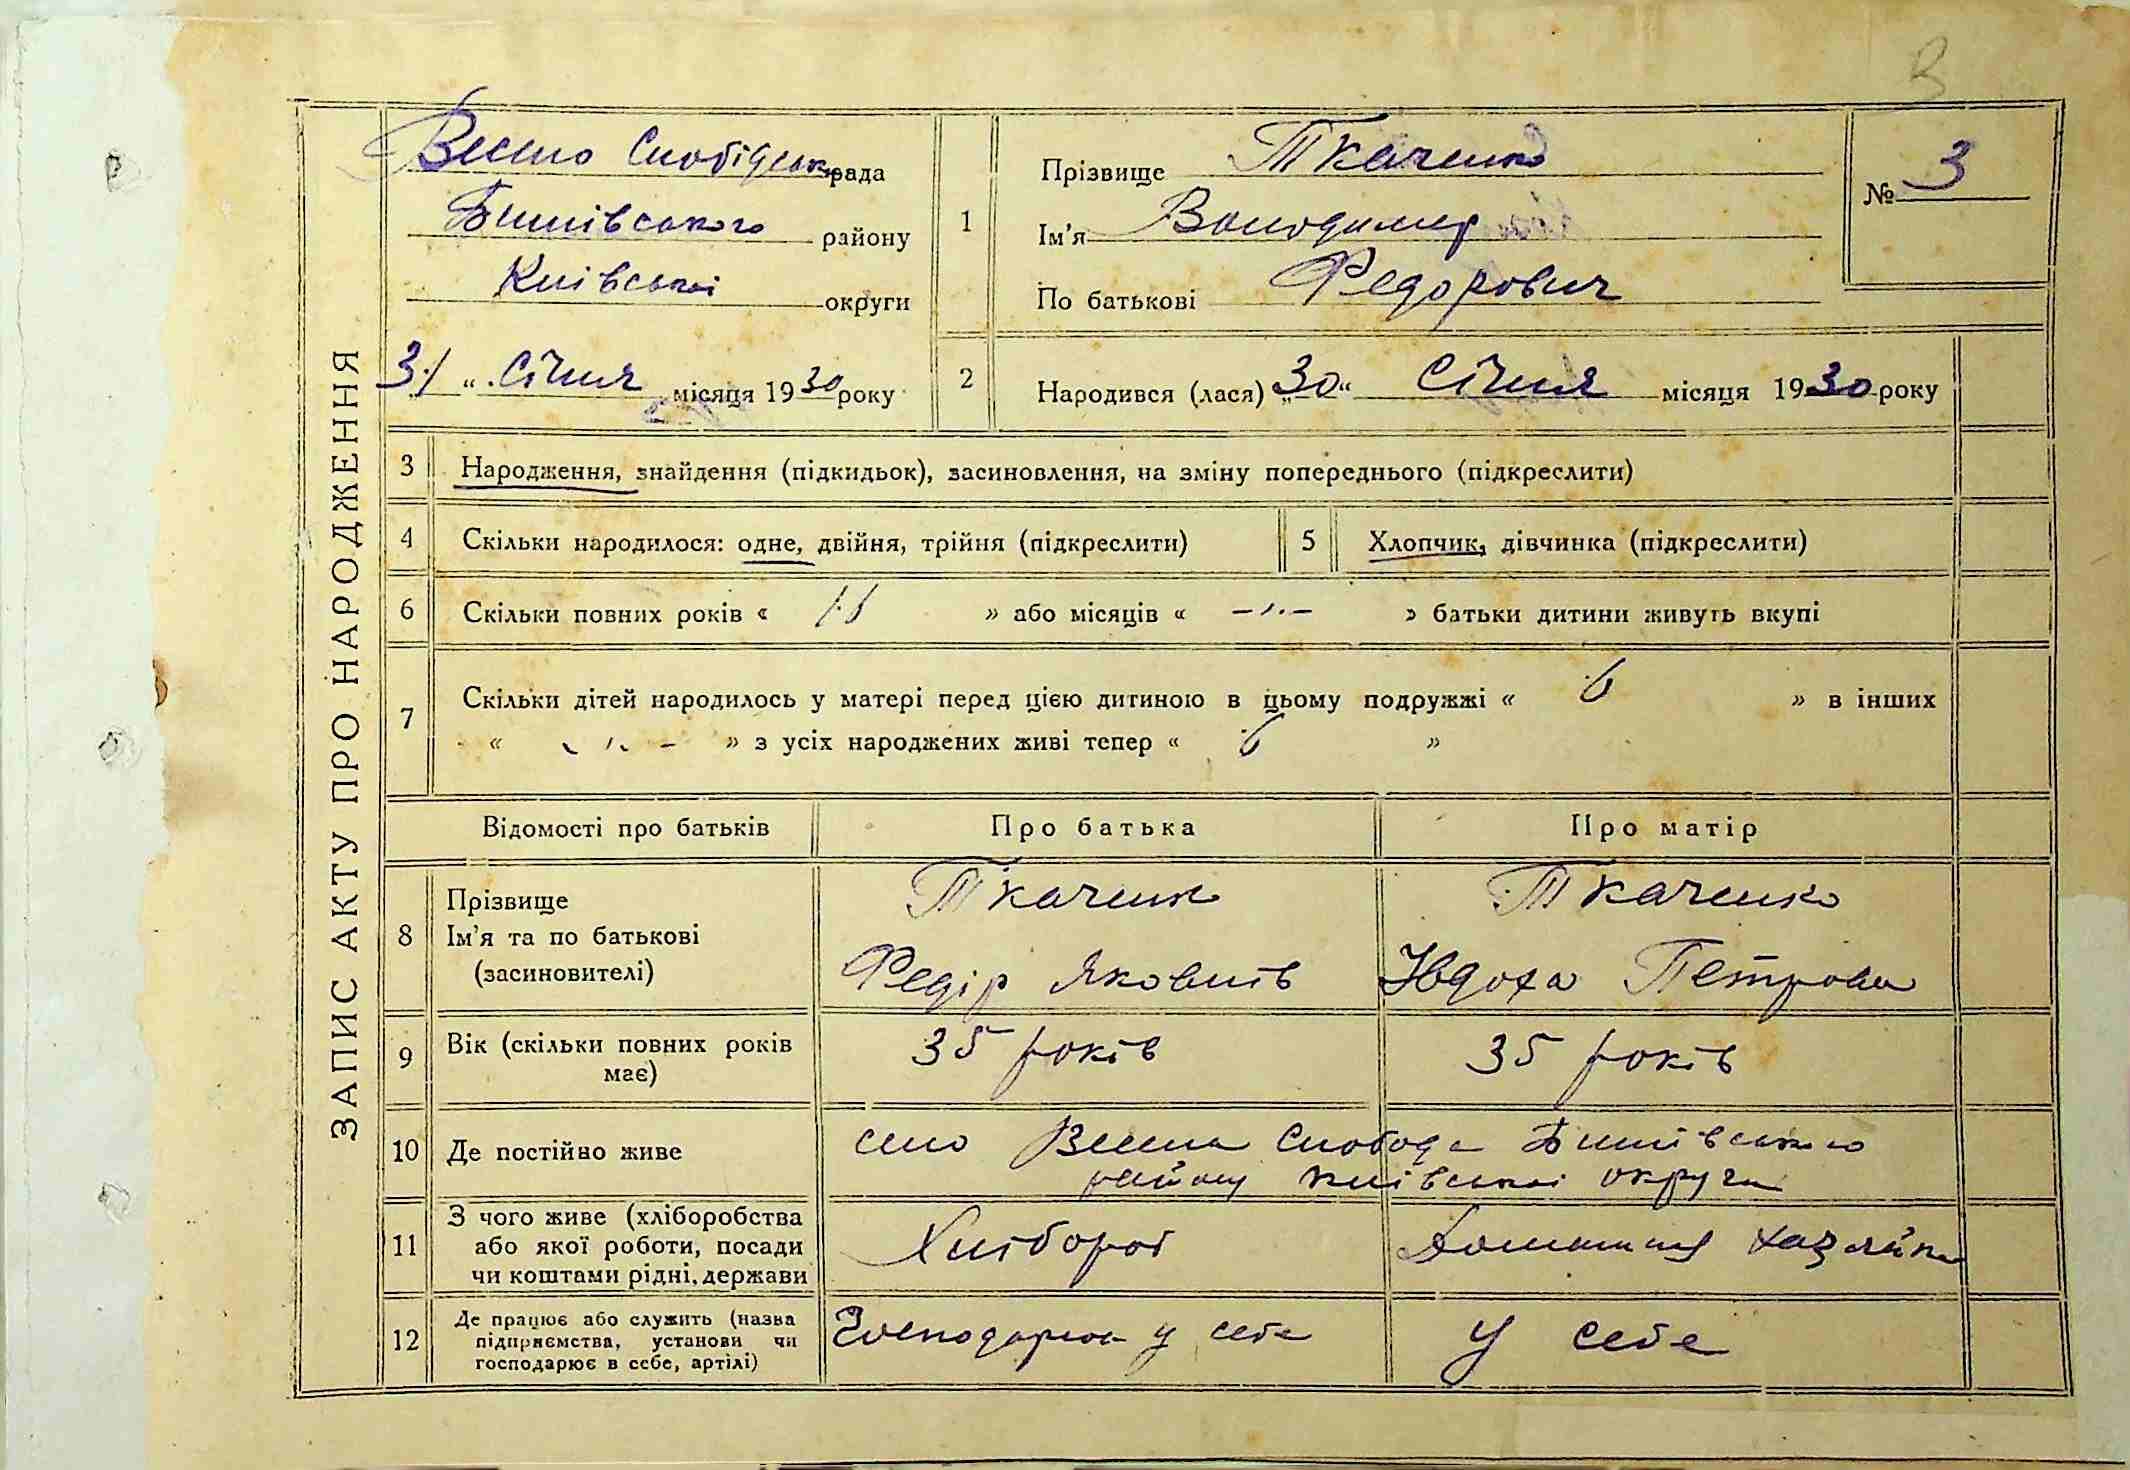 В
ЗАПИС АКТУ ПРО НАРОДЖЕННЯ
Весело Слобідська рада
Бишівського району
Київської округи
31 „ Січня місяця 1930 року
1
Прізвище Ткаченко
Ім'я Володимир
По батькові Федорович
№ 3
2 Народився (лася) „30“ Січня місяця 1930 року
3 Народження, знайдення (підкидьок), засиновлення, на зміну попереднього (підкреслити)
4 Скільки народилося: одне, двійня, трійня (підкреслити) 5 Хлопчик, дівчинка (підкреслити)
6 Скільки повних років « » або місяців « —„— » батьки дитини живуть вкупі
7 Скільки дітей народилось у матері перед цією дитиною в цьому подружжі « 6 » в інших
« - „ - » з усіх народжених живі тепер « 6 »
Відомості про батьків Про батька Про матір
8 Прізвище
Ім'я та по батькові
(засиновителі)
Ткаченко
Федір Яковлів
Ткаченко
Явдоха Петрова
9 Вік (скільки повних років
має)
35 років 35 років
10 Де постійно живе
село Весела Слобода Бишівського
району Київської округи
11 З чого живе (хліборобства
або якої роботи, посади
чи коштами рідні, держави
Хлібороб Домашня хазяйка
12 Де працює або служить (назва
підприємства, установи чи
господарює в себе, артілі)
Господарює у себе У себе